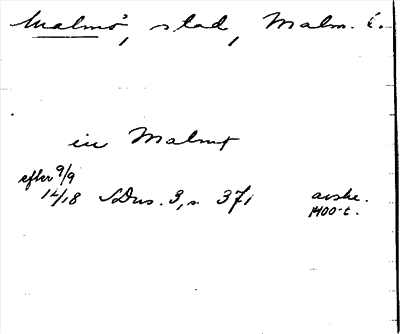 Malmö, stad, Malm. l.
in Malmø
efter 9/9
1418 SDns. 3, s. 371 avskr.
1400-t.